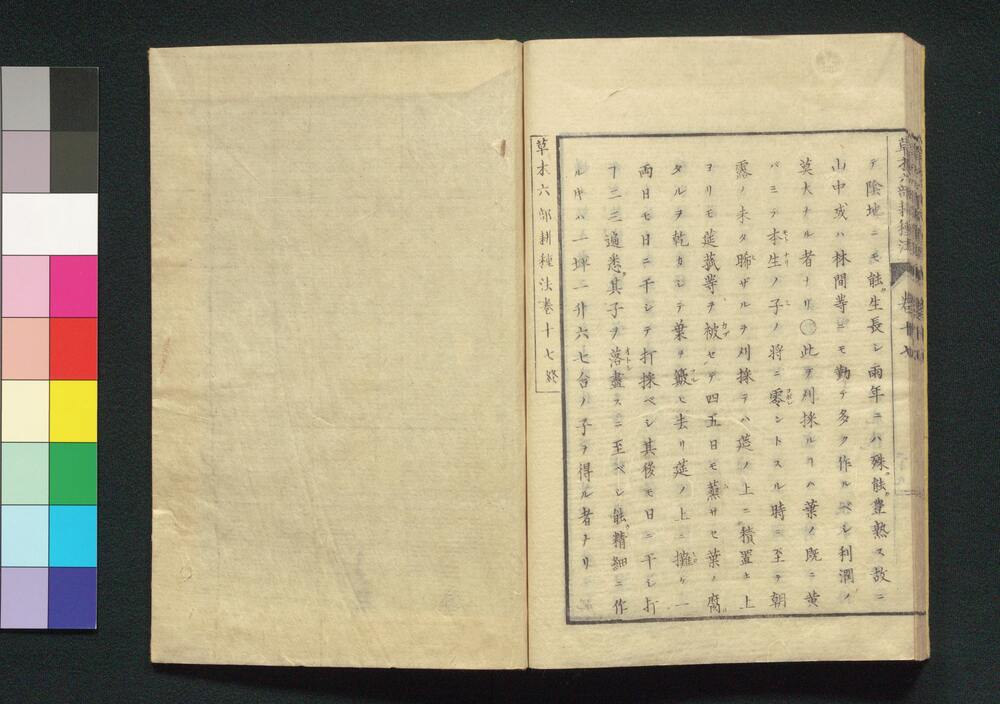 草木六部耕種法 巻十七
テ陰地ニモ能生長シ雨年ニハ殊能豊熟ス故ニ
山中或ハ林間等ニモ勤テ多ク作ルベシ利潤ノ
莫大ナル者ナリ○此ヲ刈採ルハ葉ノ既ニ黄
バミテ本生ノ子ノ将ニ零ントスル時ニ至テ朝
露ノ未タ晞ザルヲ刈採テハ莚ノ上ニ積置キ上
ヨリモ莚菰等ヲ被セテ四五日モ蒸サセ葉ノ腐
タルヲ乾カシテ葉ヲ簸ヒ去リ莚ノ上ニ攤ケ一
両日モ日ニ干シテ打採ベシ其後モ日ニ干シ打
丁三三遍悉其子ヲ落盡スニ至ベシ能精細ニ作
ル片ハ一坪二升六七合ノ子ヲ得ル者ナリ
草木六部耕種法巻十七終